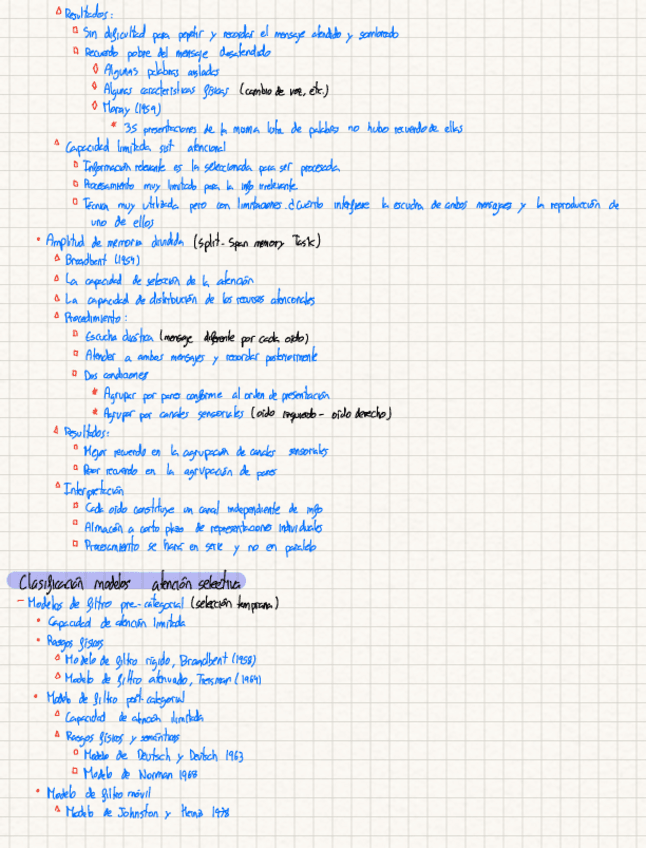 Resultados:
Sin dificultad para repetir y recordar el mensaje atendido y sombreado
Recuerdo pobre del mensaje desatendido
Algunas palabras aisladas
Algunas características físicas (cambio de voz, etc.)
Moray (1959)
35 presentaciones de la misma lista de palabras no hubo recuerdo de ellas
Capacidad limitada sist atencional
Información relevante es la seleccionada para ser procesada
Procesamiento muy limitado para la info irrelevante
Técnica muy utilizada pero con limitaciones. ¿Cuánto interfiere la escucha de ambos mensajes y la reproducción de
uno de ellos
Amplitud de memoria dividida (Split-Span memory Task)
Broadbent (1954)
La capacidad de selección de la atención
La capacidad de distribución de los recursos atencionales
Procedimiento:
Escucha dicótica (mensaje diferente por cada oído)
Atender a ambos mensajes y recordar posteriormente
Dos condiciones
Agrupar por pares conforme al orden de presentación
Agrupar por canales sensoriales (oído izquierdo - oído derecho)
Resultados:
Mejor recuerdo en la agrupación de canales sensoriales
Peor recuerdo en la agrupación de pares
Interpretación
Cada oído constituye un canal independiente de info
Almacén a corto plazo de representaciones individuales
Procesamiento se hará en serie y no en paralelo
Clasificación modelos atención selectiva
- Modelos de filtro pre-categorial (selección temprana)
Capacidad de atención limitada
Rasgos físicos
Modelo de filtro rígido, Broadbent (1958)
Modelo de filtro atenuado, Treisman (1964)
Modelo de filtro post-categorial
Capacidad de atención ilimitada
Rasgos físicos y semánticos
Modelo de Deutsch y Deutsch 1963
Modelo de Norman 1968
Modelo de filtro móvil
Modelo de Johnston y Heinz 1978